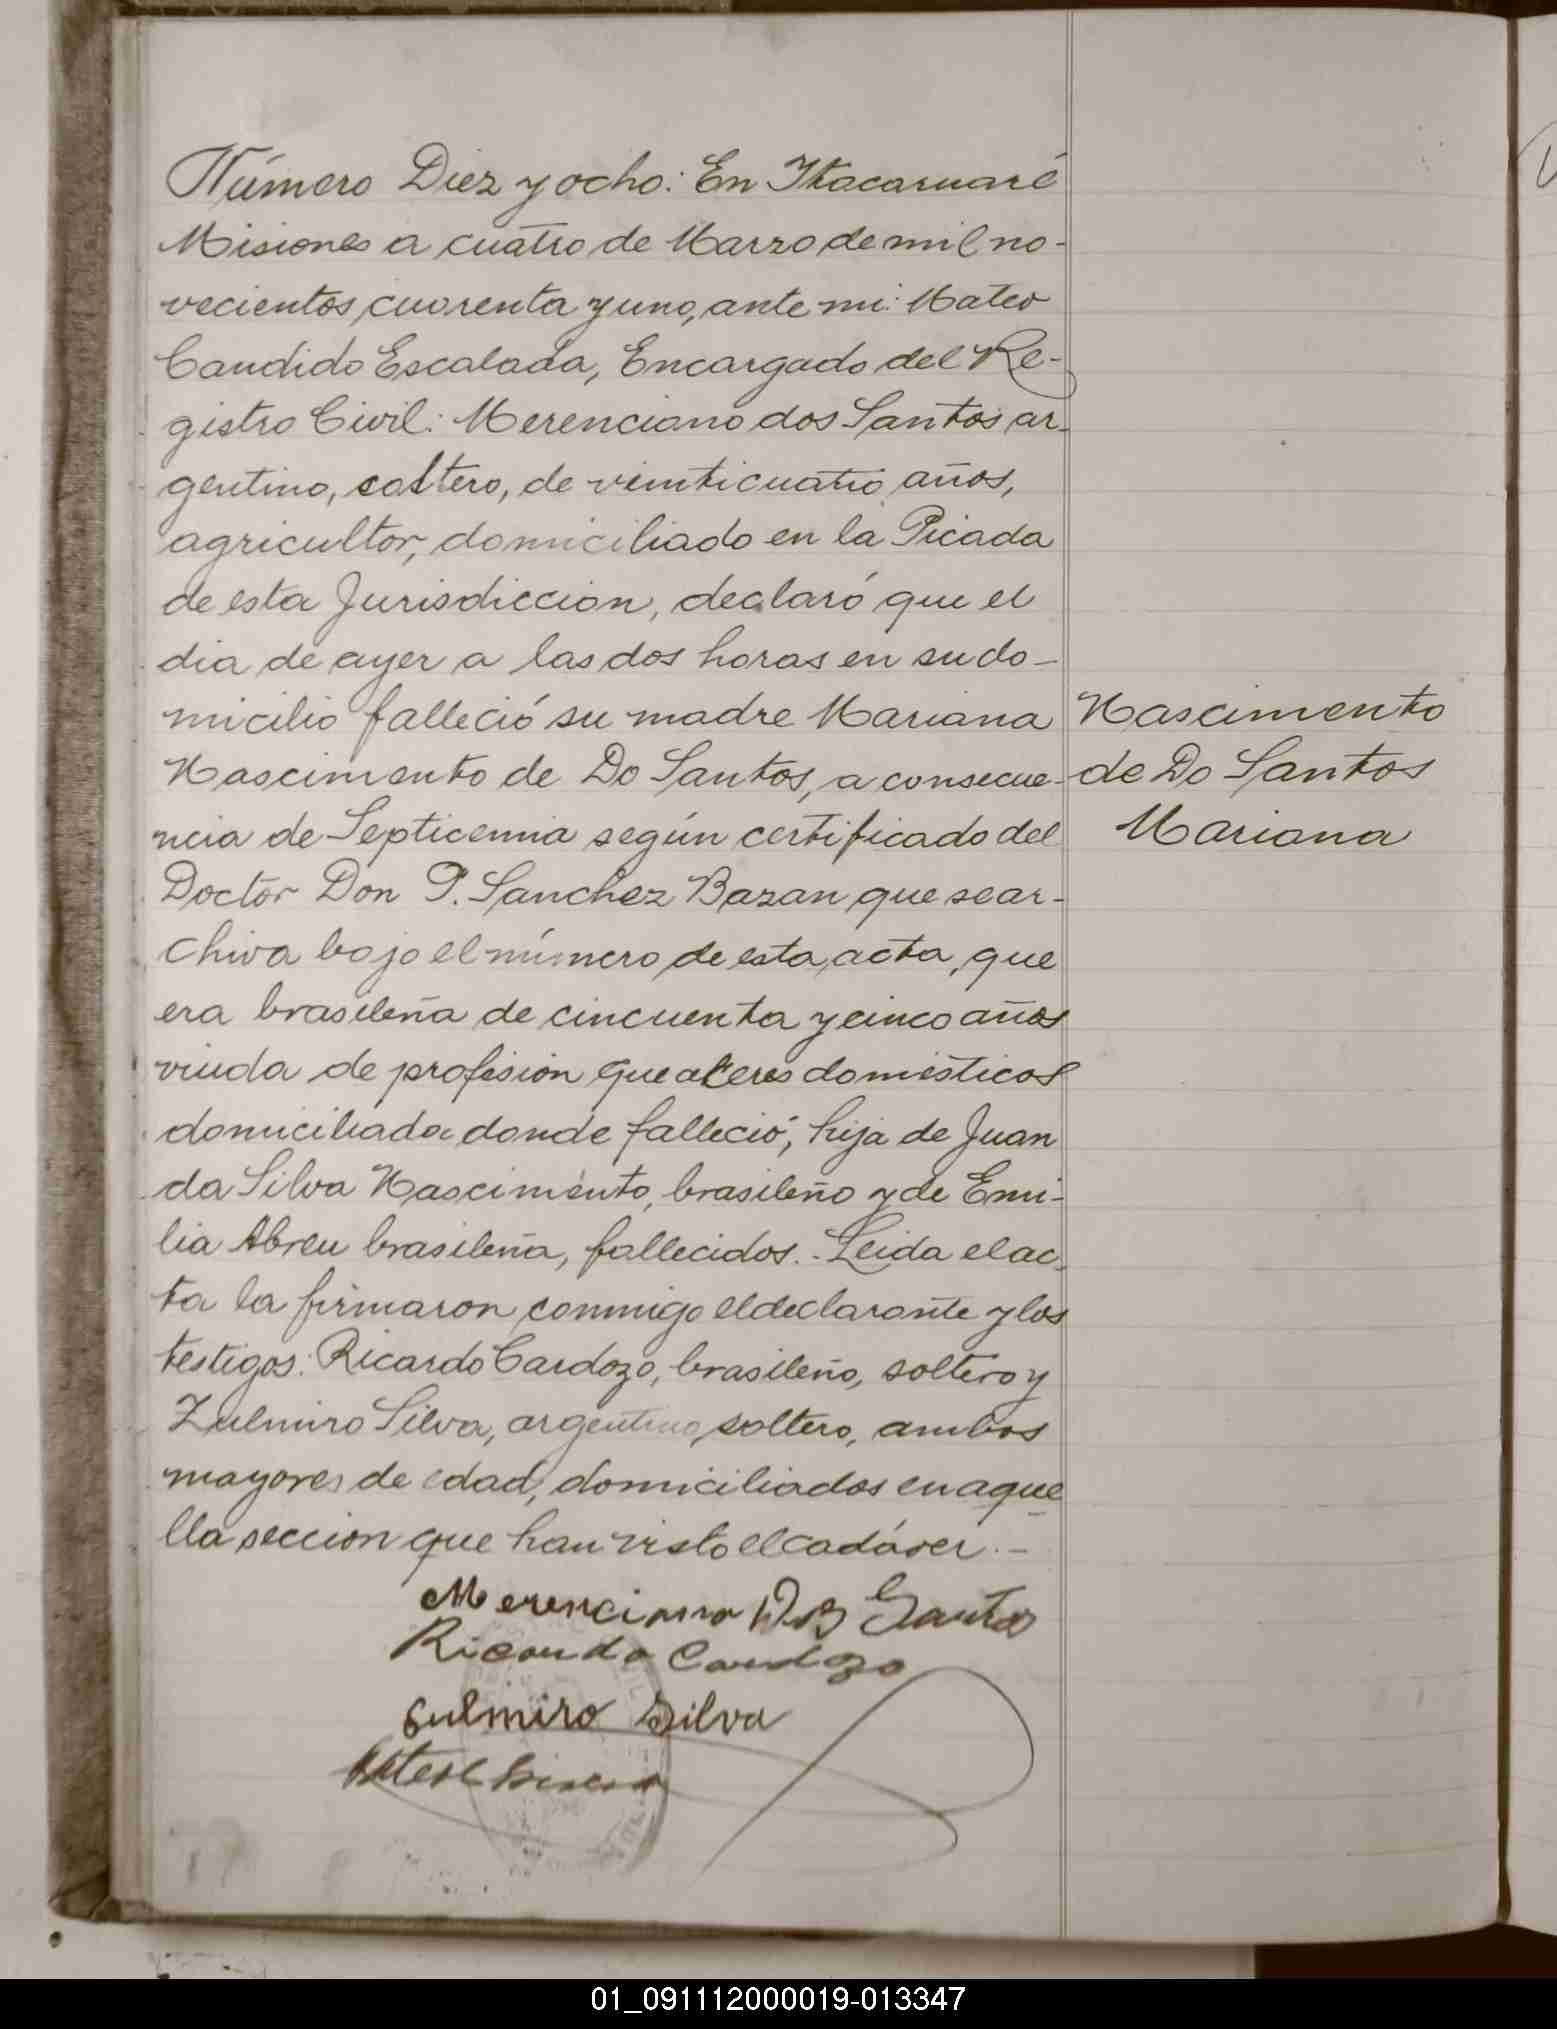 Número Diez y ocho: En Itacaruaré
Misiones a cuatro de Marzo de mil no-
vecientos cuorenta y uno, ante mi: Mateo
Candido Escalada, Encargado del Re-
gistro Civil: Merenciano dos Santos ar-
gentino, soltero, de veinticuatro años,
agricultor, domiciliado en la Picada
de esta Jurisdiccion, declaró que el
dia de ayer a las dos horas en su do-
micilio falleció su madre Mariana
Nascimento de Do Santos, a consecue-
ncia de Septicemia según certificado del
Doctor Don P. Sanchez Bazan que se ar-
chiva bajo el número de esta acta, que
era brasileña de cincuenta y cinco años
viuda de profesion que aceres domésticos
domiciliada donde falleció, hija de Juan
da Silva Nascimento, brasileño y de Emi-
lia Abreu brasileña, fallecidos.- Leida el ac-
ta la firmaron conmigo el declarante y los
testigos: Ricardo Cardozo, brasileño, soltero y
Zulmiro Silva, argentino, soltero, ambos
mayores de edad, domiciliados en aque
lla seccion que han visto el cadáver.-
Nascimento
de Do Santos
Mariana
Merenciano Dos Santos
Ricardo Cardozo
Sulmiro Silva
01_091112000019-013347